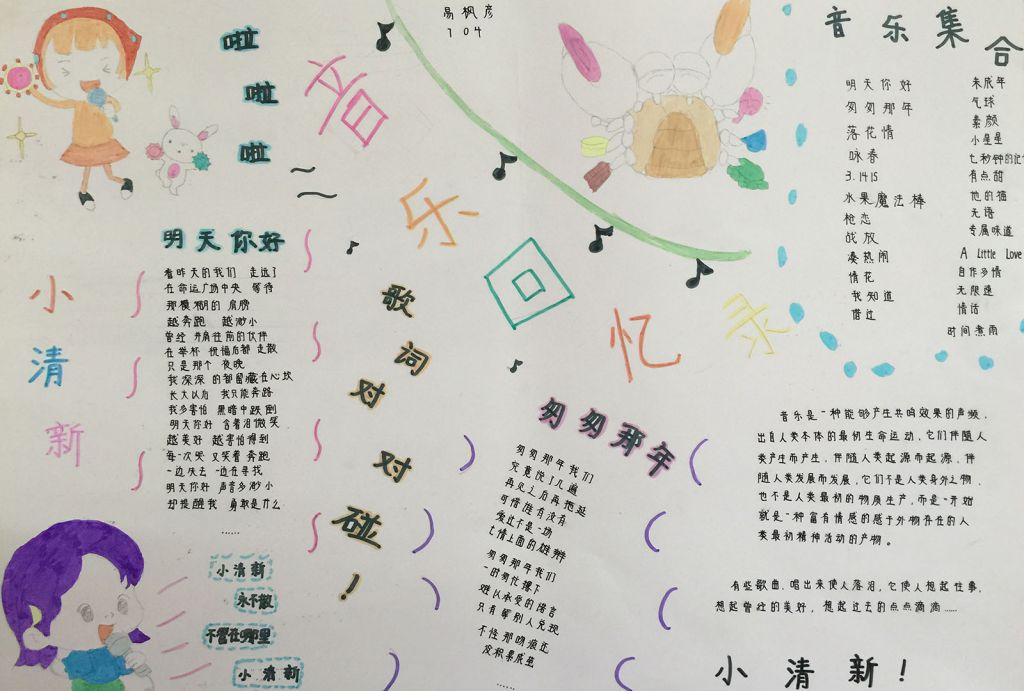 易枫彦
104
啦
啦
啦
音乐回忆录
音乐集合
明天你好
匆匆那年
落花情
咏春
3.1415
水果魔法棒
枪恋
战放
凑热闹
情花
我知道
借过
未成年
气球
素颜
小星星
七秒钟的记忆
有点甜
他的猫
无语
专属味道
A Little Love
自作多情
无限速
情话
时间煮雨
小清新
明天你好
看昨天的我们 走远了
在命运广场中央 等待
那模糊的 肩膀
越奔跑 越渺小
曾经 并肩往前的伙伴
在举杯 祝福后都 走散
只是那个 夜晚
我深深 的都留藏在心坎
长大以后 我只能奔跑
我多害怕 黑暗中跌倒
明天你好 含着泪微笑
越美好 越害怕得到
每一次哭 又笑着 奔跑
一边失去 一边在寻找
明天你好 声音多渺小
却提醒我 勇敢是什么
……
歌词对对碰！
匆匆那年
匆匆那年我们
究竟说了几遍
再见之后再拖延
可惜谁有没有
爱过不是一场
七情上面的雄辩
匆匆那年我们
一时匆忙撂下
难以承受的诺言
只有等别人兑现
不怪那吻痕还
没积累成茧
……
音乐是一种能够产生共鸣效果的声频，
出自人类本体的最初生命运动，它们伴随人
类产生而产生，伴随人类起源而起源，伴
随人类发展而发展，它们不是人类身外之物，
也不是人类最初的物质生产，而是一开始
就是一种富有情感的感于外物存在的人
类最初精神活动的产物。
有些歌曲，唱出来使人落泪，它使人想起往事，
想起曾经的美好，想起过去的点点滴滴……
小清新
永不散
不管在哪里
小清新
小清新！